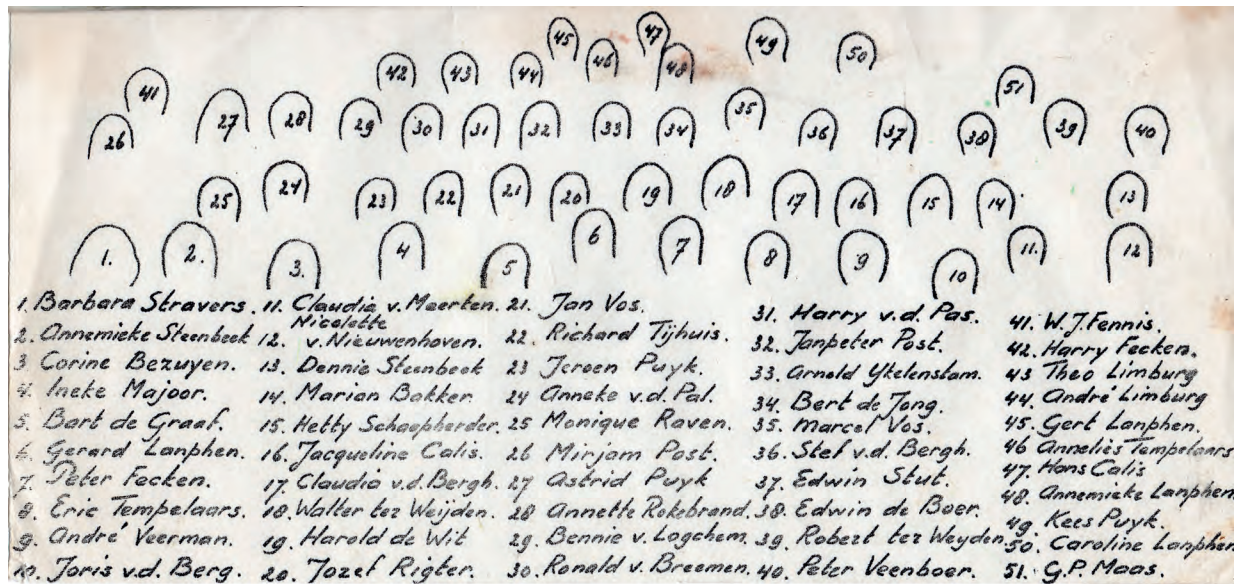 45 47 49 50
42 43 44 46 48 51
41 27 28 29 30 31 32 33 34 35 36 37 38 39 40
26
25 24 23 22 21 20 19 18 17 16 15 14 13
1. 2. 3. 4 5 6 7 8 9 10 11. 12
1. Barbara Stravers.
2. Annemieke Steenbeek
3 Corine Bezuyen.
4. Ineke Majoor.
5. Bart de Graaf.
6. Gerard Lanphen.
7. Peter Fecken.
8. Eric Tempelaars.
9. André Veerman.
10. Joris v.d. Berg.
11. Claudia v. Meerten.
12. Nicolette
v. Nieuwenhoven.
13. Dennie Steenbeek
14. Marian Bakker.
15. Hetty Schaapherder.
16. Jacqueline Calis.
17. Claudia v.d. Bergh.
18. Walter ter Weijden.
19. Harold de Wit
20. Jozef Rigter.
21. Jan Vos.
22. Richard Tijhuis.
23 Jeroen Puyk.
24 Anneke v.d. Pal.
25 Monique Raven.
26 Mirjam Post.
27 Astrid Puyk
28 Annette Rokebrand.
29. Bennie v. Logchem.
30. Ronald v. Breemen.
31. Harry v.d. Pas.
32. Janpeter Post.
33. Arnold Ykelenstam.
34. Bert de Jong.
35. Marcel Vos.
36. Stef v.d. Bergh.
37. Edwin Stut.
38. Edwin de Boer.
39. Robert ter Weyden.
40. Peter Veenboer.
41. W.J. Fennis.
42. Harry Fecken.
43 Theo Limburg
44. André Limburg
45. Gert Lanphen.
46 Annelies Tempelaars
47. Hans Calis
48. Annemieke Lanphen
49. Kees Puyk.
50. Caroline Lanphen
51. G.P. Maas.